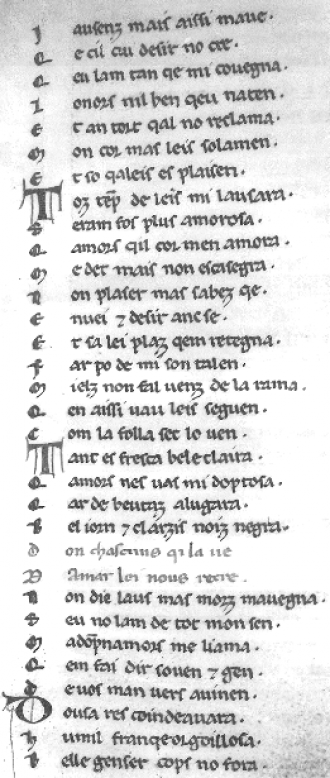 I ausenz mais aissi maue.
Q e cil cui desir no cre.
Q eu lam tan qe mi couegna.
L onors nil ben qeu naten.
E t an tort qal no reclama.
M on cor mas leis solamen.
E t so qaleis es plaisen.
T oz tēp de leis mi lausara.
S eram fos plus amorosa.
Q amors qil cor men amora.
M e det mais non escasegra.
N on plaser mas sabez qe.
E nuei ⁊ desir anc se.
E t sa lei plaz qem retegna.
F ar po de mi son talen.
M ielz non fal uenz de la rama.
Q en aissi uau leis seguen.
C om la folla sec lo uen.
T ant es fresca bele claira.
Q amors nes uas mi doptosa.
Q ar de beutaz alugara.
B el iorn ⁊ clarzis noiz negra.
D on chascuns qi la ue
A mar lei nous recre.
N on die laus mas morz mauegna.
S eu no lam de tot mon sen.
M adōpnamors me liama.
Q em fai dir souen ⁊ gen.
D e uos man uers auinen.
D ousa res coindeauara.
H umil franqe orgoillosa.
B elle genser cops no fora.